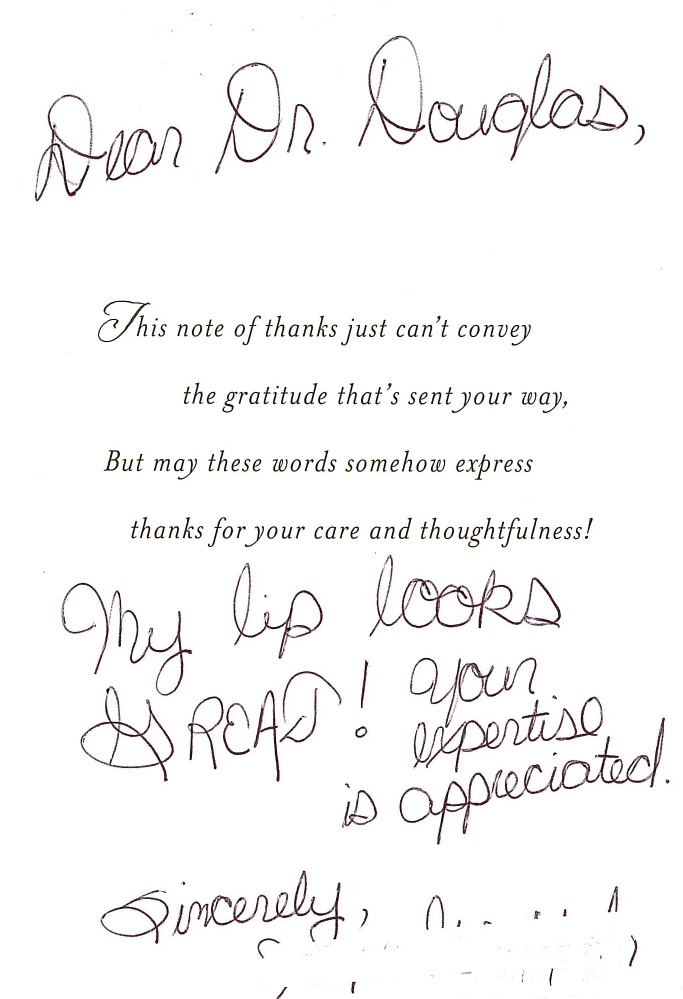 Dear Dr. Douglas,
This note of thanks just can't convey
the gratitude that's sent your way,
But may these words somehow express
thanks for your care and thoughtfulness!
My lip looks
GREAT! Your
expertise
is appreciated.
Sincerely,